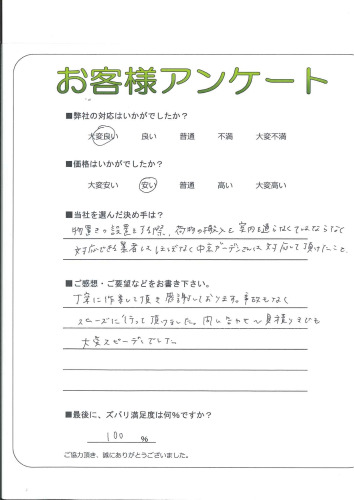 お客様アンケート
■弊社の対応はいかがでしたか?
大変良い 良い 普通 不満 大変不満
■価格はいかがでしたか?
大変安い 安い 普通 高い 大変高い
■当社を選んだ決め手は?
物置きの設置をする際、荷物の搬入を室内を通らなくてはならなくて
対応できる業者は 対応して頂けたこと、
■ご感想・ご要望などをお書き下さい。
丁寧に作業して頂き感謝しております。事故もなく
スムーズに行って頂けました。問い合わせ〜見積りまでも
大変スピーディでした。
■最後に、ズバリ満足度は何%ですか?
100 %
ご協力頂き、誠にありがとうございました。